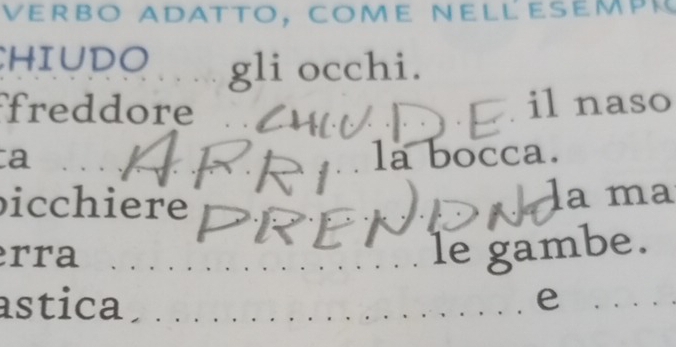 VERBO ADATTO, COME NELL'ESEMPIO
CHIUDO gli occhi.
ffreddore CHIUDE il naso
ta ARRI la bocca.
bicchiere PRENDNO la ma
erra le gambe.
astica e